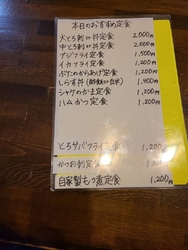 本日のおすすめ定食
大とろ刺 定食 2,000円
中とろ刺 定食 2,000円
アジフライ定食 1,500円
イカフライ定食 1,200円
のからあげ定食 1,200円
しらす丼 1,200円
シャケのかま定食 1,200円
ハムかつ定食 1,200円
とろサバフライ定食 1,200
かつお刺定食
自家製もつ煮定食 1,200円